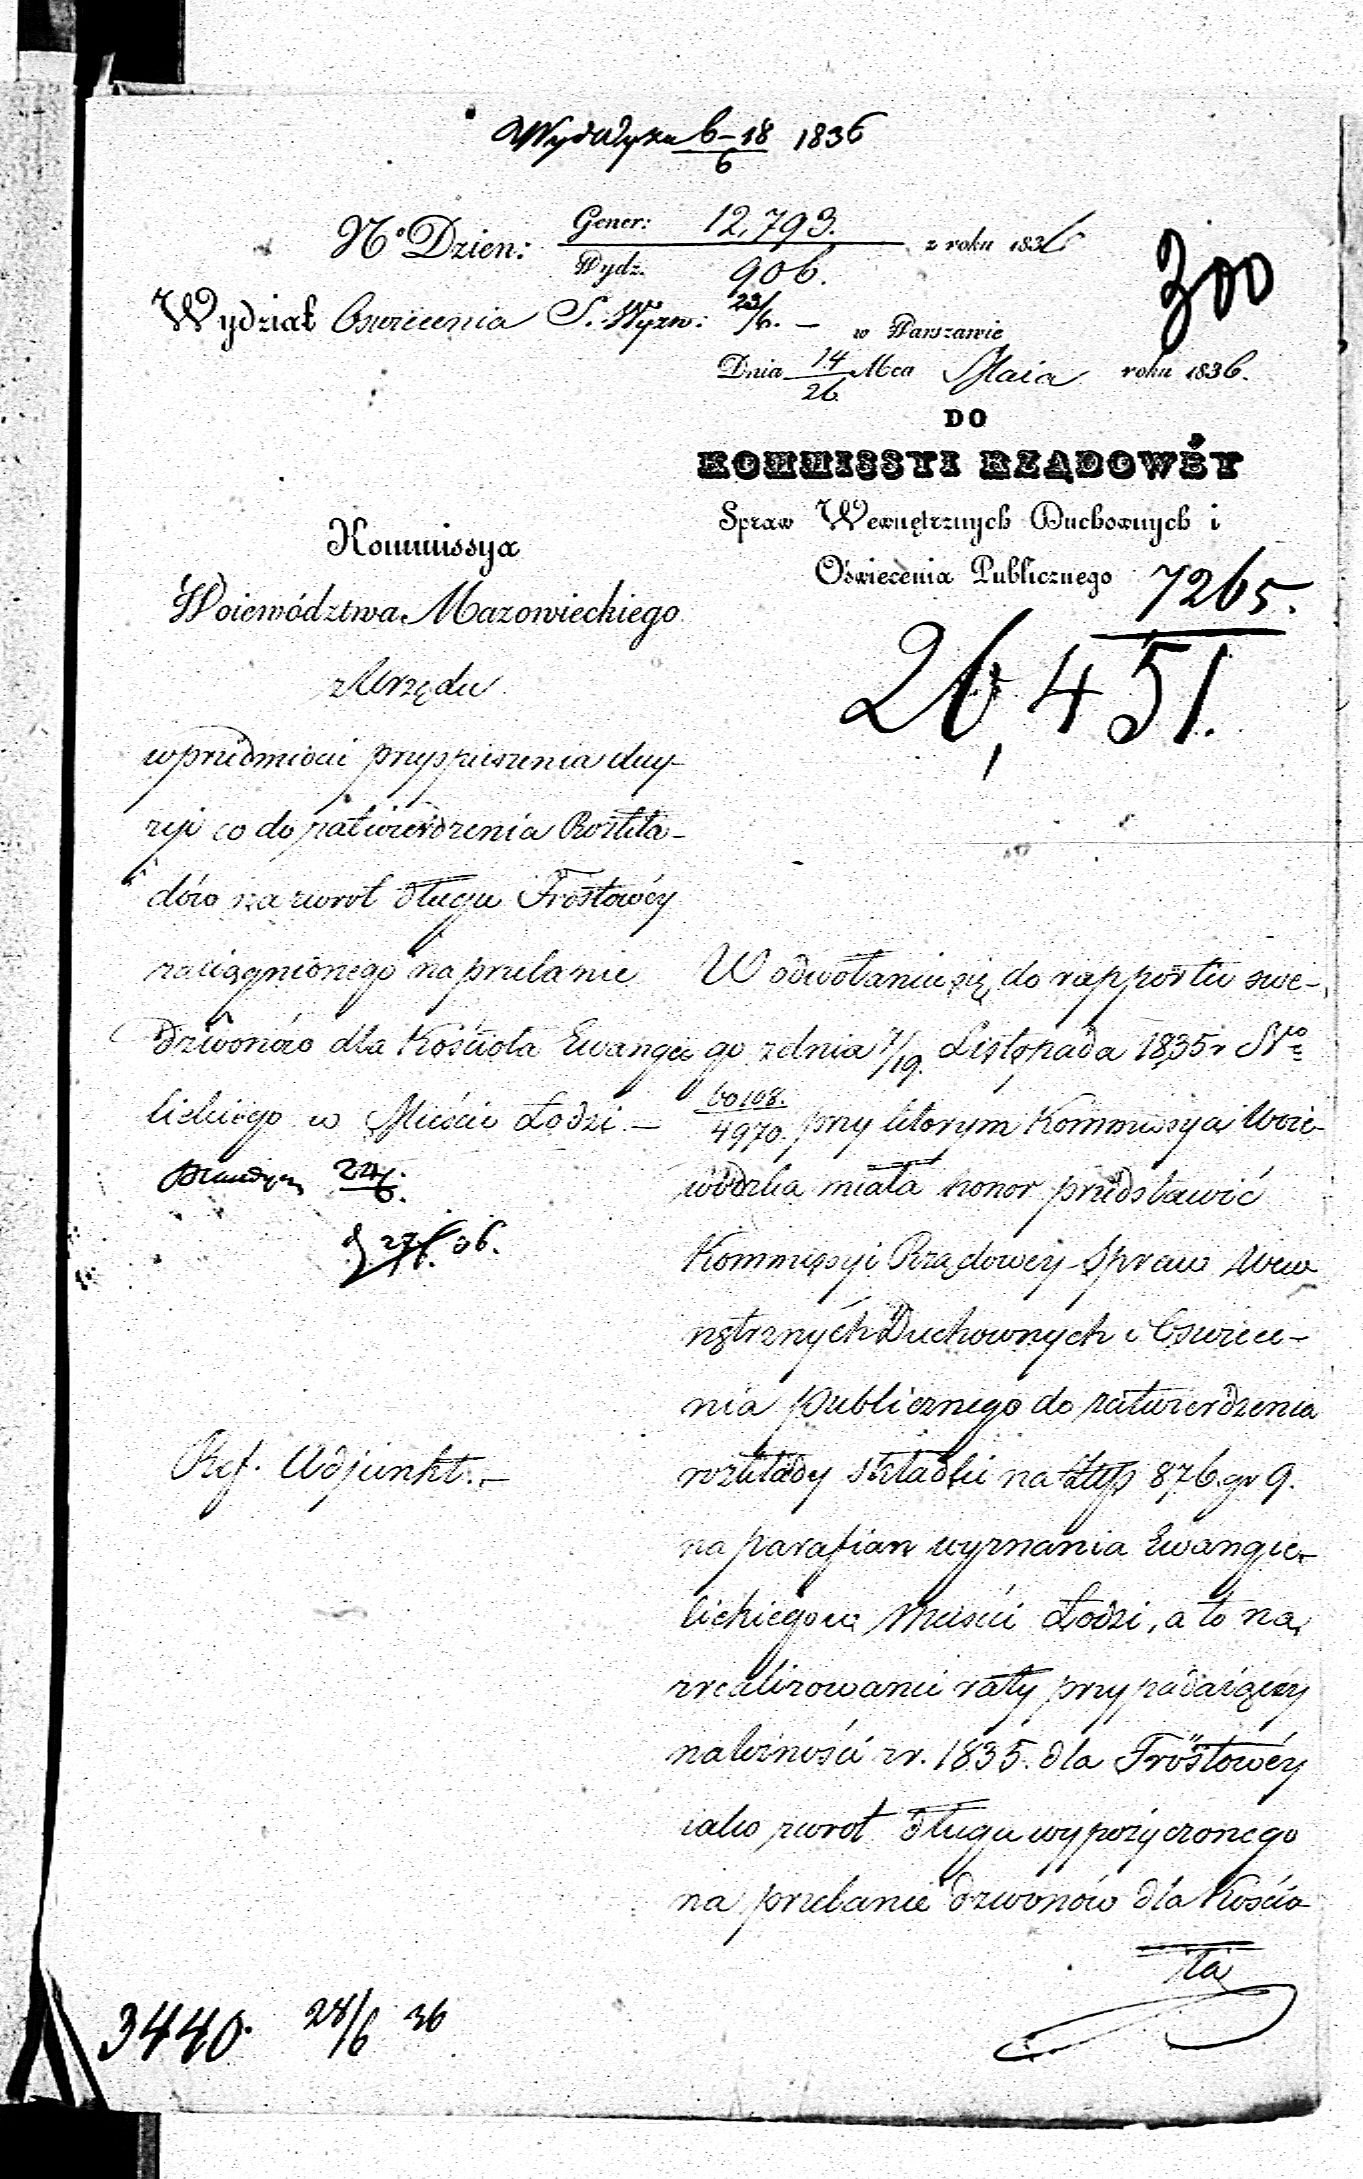 6-18/6 1836
N° Dzien: Gener: 12,793. z roku 1836
Wydz. 906.
300
Wydział Oswiecenia S. Wyzn: 23/6. – w Warszawie
Dnia 14/26 Mca Maia roku 1836.
DO
KOMMISSYI RZĄDOWÉY
Spraw Wewnętrznych Duchownych i
Oświecenia Publicznego
7265.
26,451.
Kommissya
Woiewództwa Mazowieckiego
z Urzędu
w przedmiocie przyspieszenia decy-
zyi co do zatwierdzenia Rozkła-
dów na zwrot długu Fröstowéy
zaciągnionego na przelanie
dzwonów dla Kościoła Ewangie
lickiego w Mieście Łodzi. –
24/6.
27/6. 36.
Ref. Adjunkt. –
W odwołaniu się do rapportu swe-
go z dnia 7/19. Listopada 1835 r Nro
60108./4970. przy którym Kommissya Woie-
wódzka miała honor przedstawić
Kommissyi Rządowéy Spraw Wew
nętrznych Duchownych i Oswiece-
nia publicznego do zatwierdzenia
rozkłady składki na Złtp 876. gr 9.
na parafian wyznania Ewangie-
lickiego w Mieście Łodzi, a to na
zrealizowanie raty przypadaiącey
należności z r. 1835. dla Fröstowéy
iako zwrot długu wypożyczonego
na przelanie dzwonów dla Kościo
ła
3440. 28/6 36